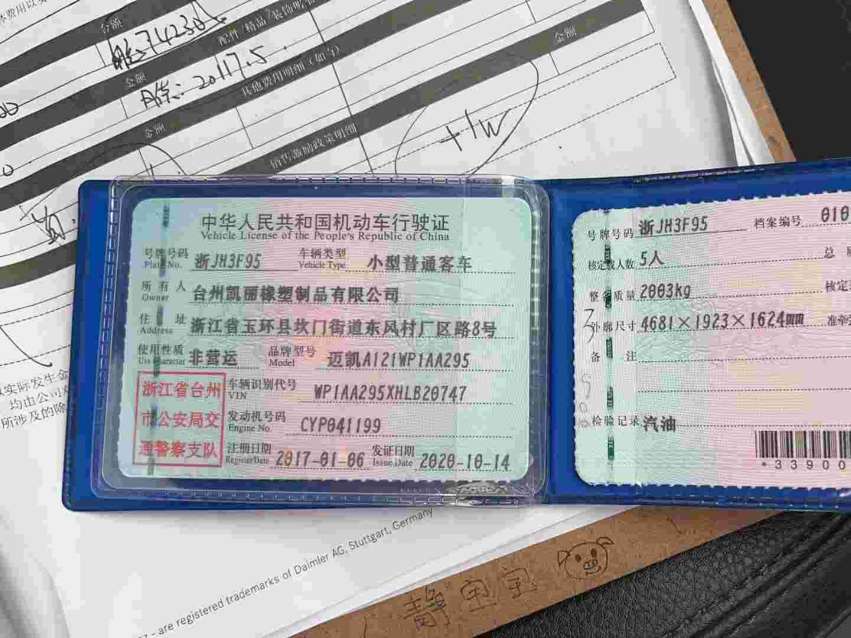 份额
配件/精品/装饰明细
金额
其他费用明细(如亏)
金额
金额
销售激励政策明细
+1W
中华人民共和国机动车行驶证
Vehicle License of the People's Republic of China
号牌号码 Plate No. 浙JH3F95 车辆类型 Vehicle Type 小型普通客车
所有人 Owner 台州凯丽橡塑制品有限公司
住址 Address 浙江省玉环县坎门街道东风村厂区路8号
使用性质 Use Character 非营运 品牌型号 Model 迈凯A121WP1AA295
浙江省台州市公安局交通警察支队
车辆识别代号 VIN WP1AA295XHLB20747
发动机号码 Engine No. CYP041199
注册日期 Register Date 2017-01-06 发证日期 Issue Date 2020-10-14
号牌号码 浙JH3F95 档案编号 010
核定载人数 5人 总
整备质量 2003kg 核定
外廓尺寸 4681×1923×1624mm 准牵
备注
检验记录 汽油
*33900
实际发生金
均由公司
所涉及的除
are registered trademarks of Daimler AG, Stuttgart, Germany
静宝宝